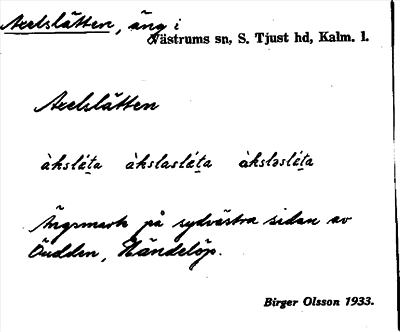 Axelslätten, äng i
Västrums sn, S. Tjust hd, Kalm. l.
Axelslätten
àkslé̱ta àkslaslé̱ta àksləslé̱ta
Ängsmark på sydvästra sidan av
Öudden, Händelöp.
Birger Olsson 1933.